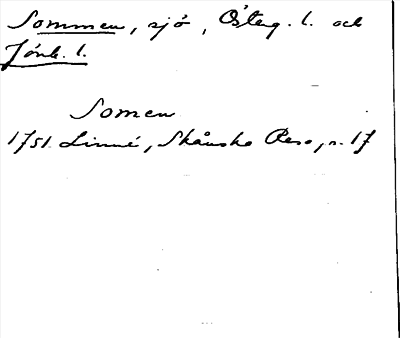 Sommen, sjö, Österg. l. och
Jönk. l.
Somen
1751. Linné, Skånska Resa, s. 17